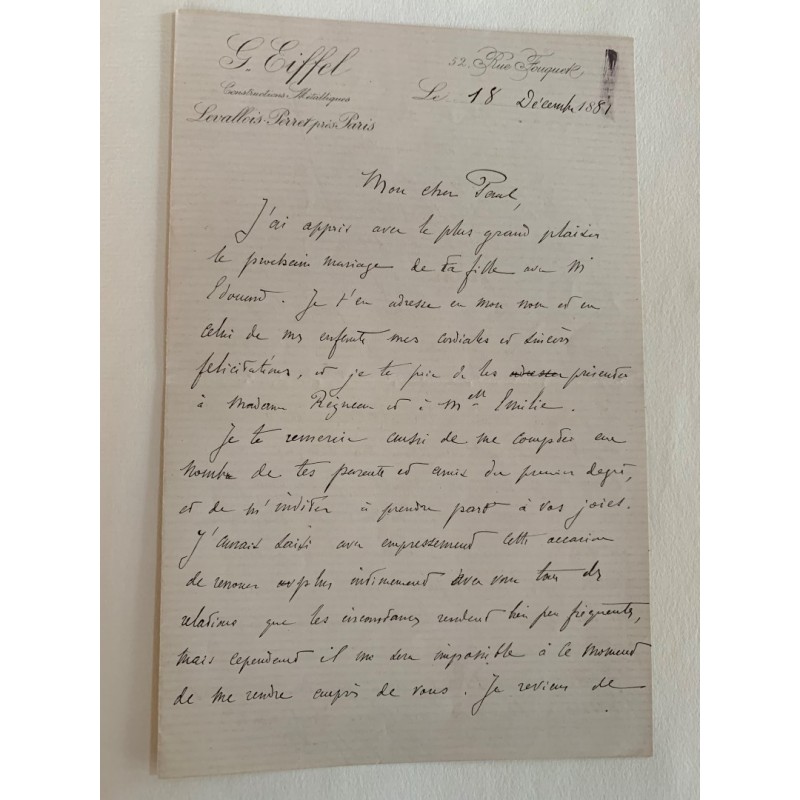 G. Eiffel
Constructions Métalliques
Levallois-Perret près Paris
52, Rue Fouquet,
Le 18 Décembre 1881
Mon cher Paul,
J'ai appris avec le plus grand plaisir
le prochain mariage de ta fille avec Mr
Edouard. Je t'en adresse en mon nom et en
celui de mes enfants mes cordiales et sincères
félicitations, et je te prie de les adresser présenter
à Madame Régneau et à Melle Emilie.
Je te remercie aussi de me compter au
nombre de tes parents et amis du premier degré,
et de m'inviter à prendre part à vos joies.
J'aurais saisi avec empressement cette occasion
de renouer plus intimement avec vous tous des
relations que les circonstances rendent bien peu fréquentes,
mais cependant il me sera impossible à ce moment
de me rendre auprès de vous. Je reviens de